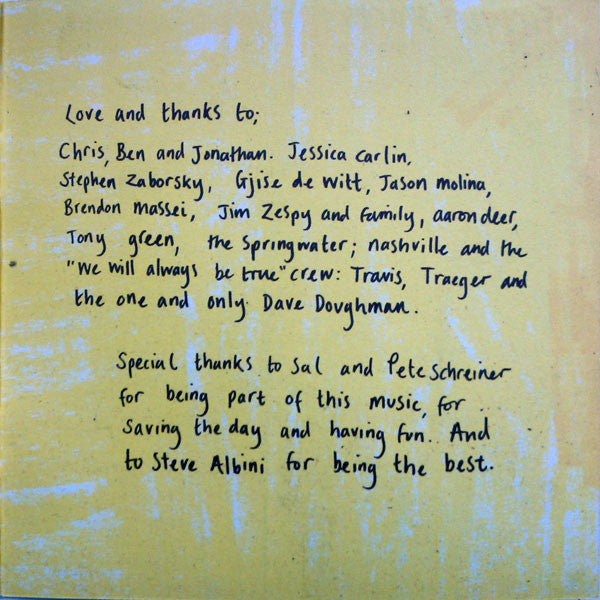 Love and thanks to;
Chris, Ben and Jonathan. Jessica Carlin,
Stephen Zaborsky, Gjise de Witt, Jason molina,
Brendon massei, Jim Zespy and family, aaron deer,
Tony green, the springwater; nashville and the
"we will always be true" crew: Travis, Traeger and
the one and only Dave Doughman.
Special thanks to Sal and Pete Schreiner
for being part of this music, for
saving the day and having fun. And
to Steve Albini for being the best.